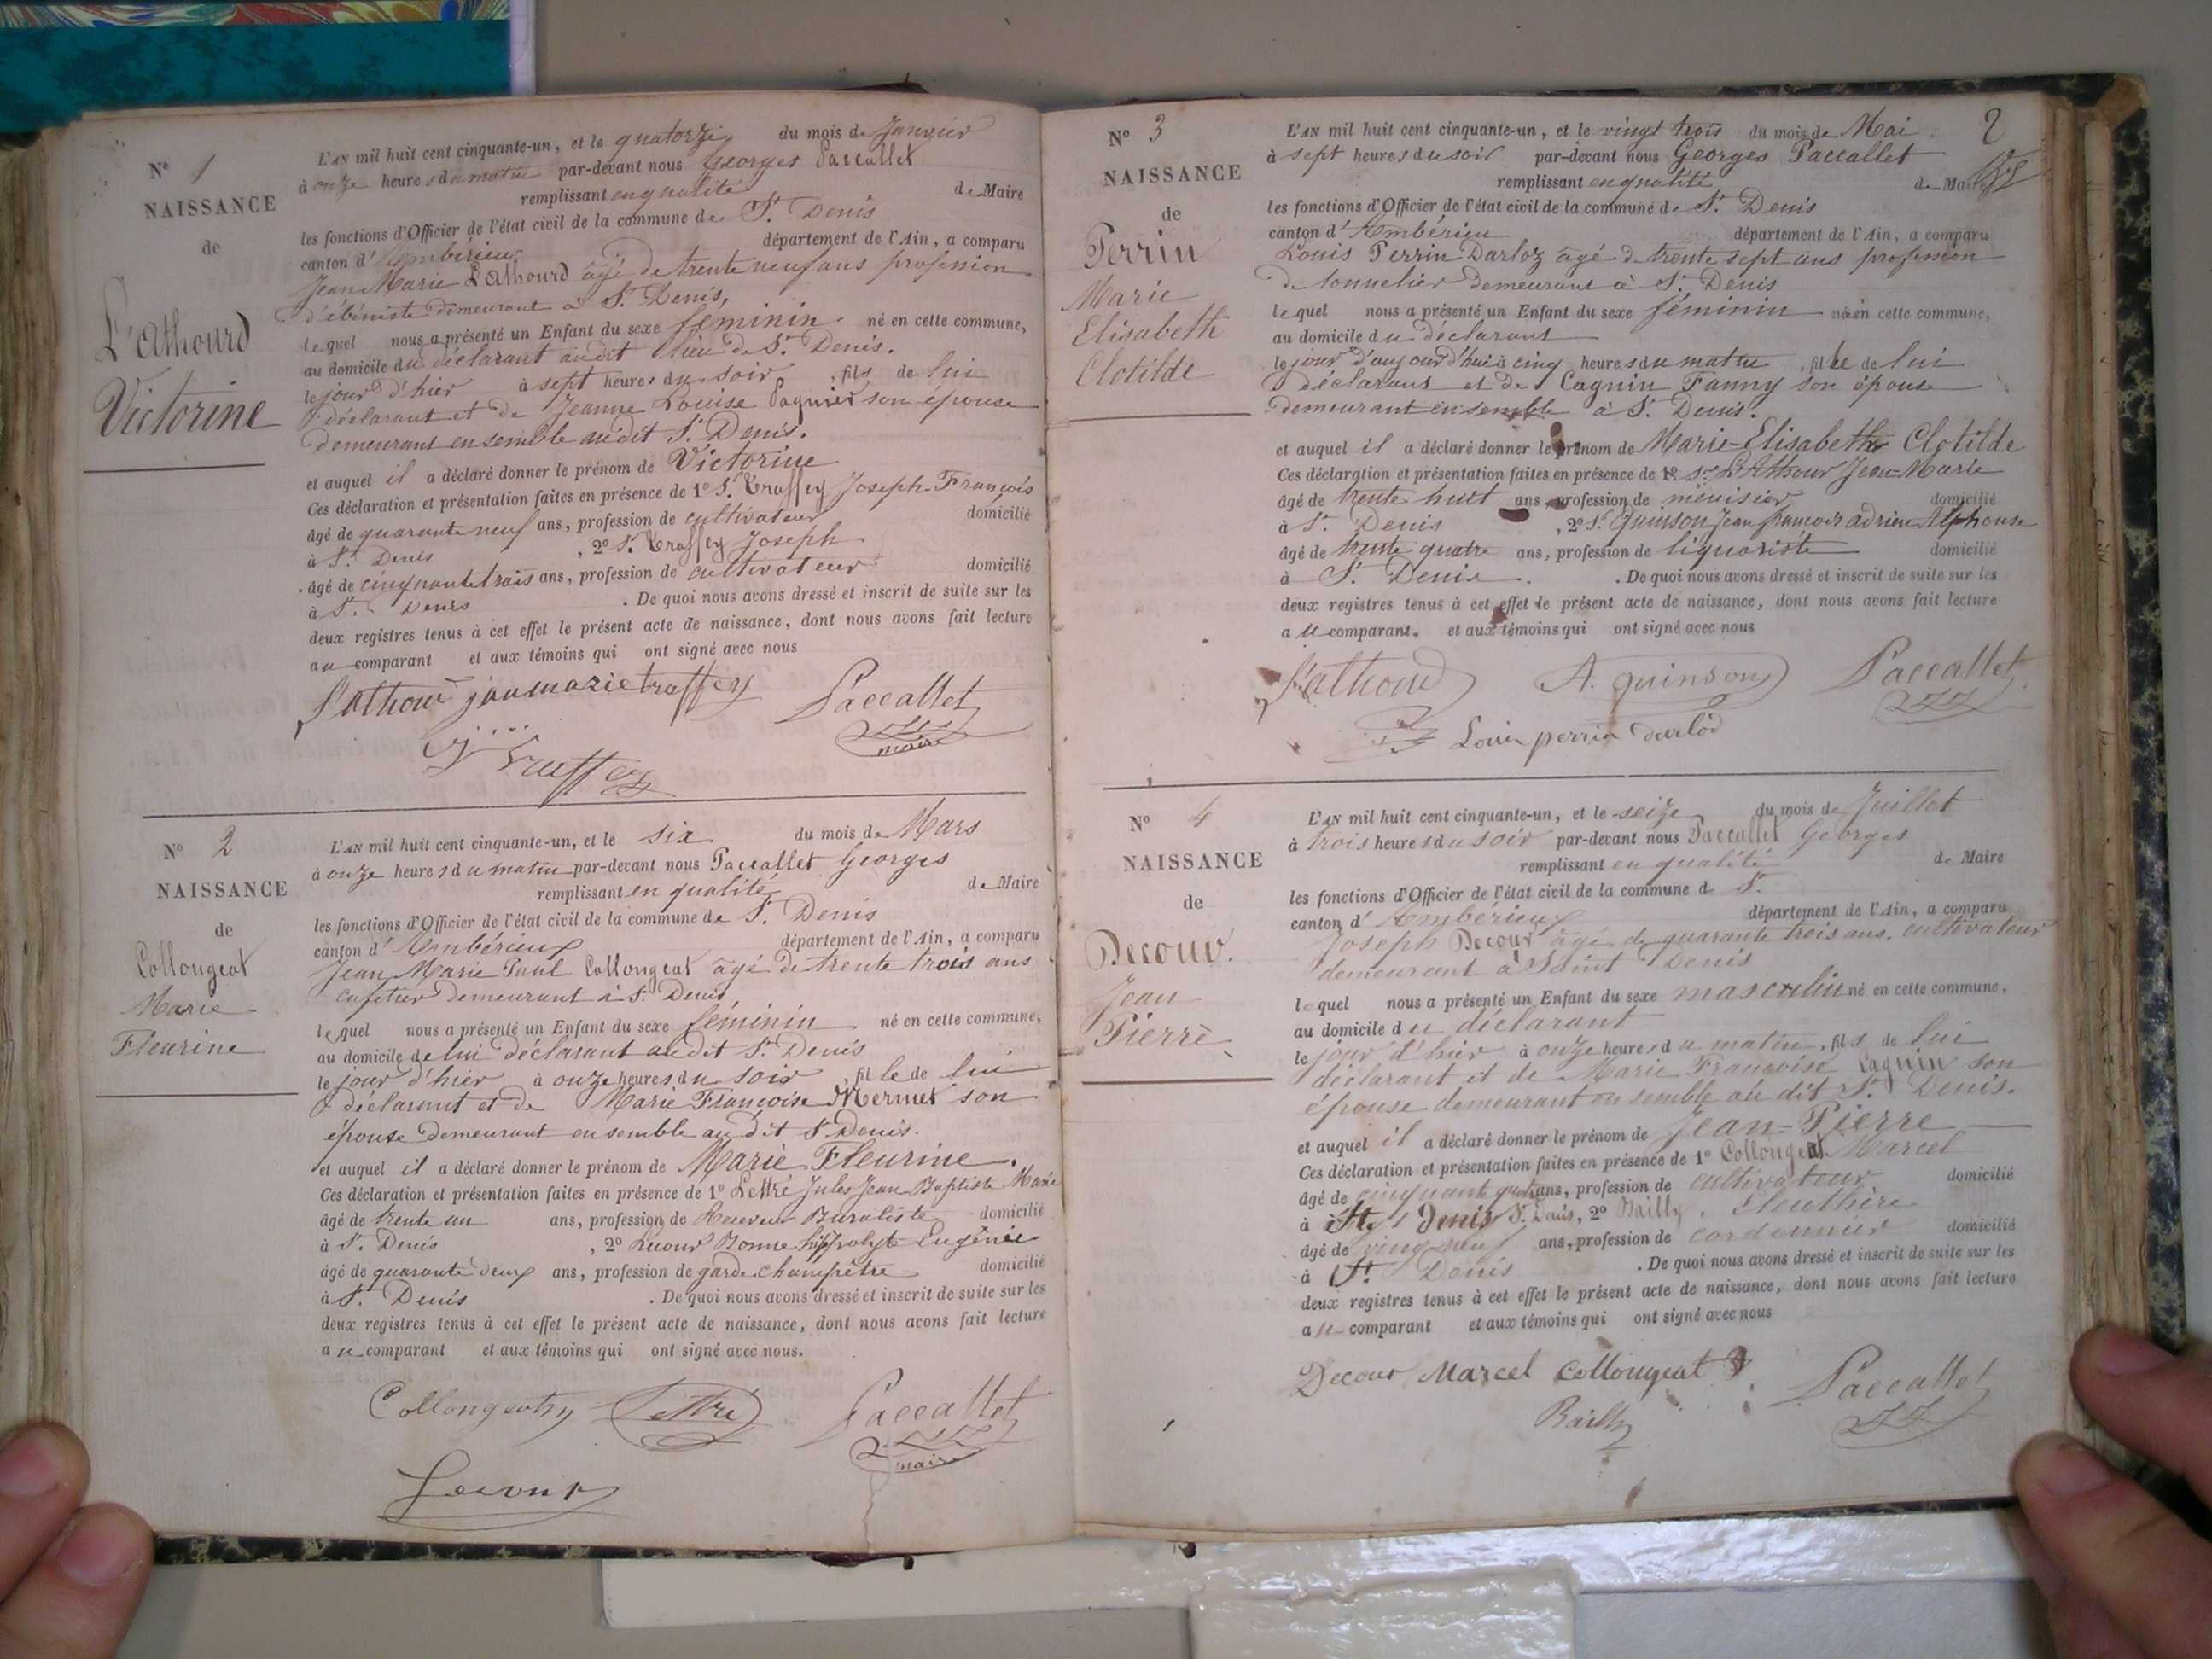 N° 1
NAISSANCE
de
L'athourd
Victorine
L'AN mil huit cent cinquante-un, et le quatorze du mois de Janvier
à onze heures du matin par-devant nous Georges Paccallet
remplissant en qualité de Maire
les fonctions d'Officier de l'état civil de la commune de St. Denis
canton d'Ambérieu département de l'Ain, a comparu
Jean Marie L'athourd âgé de trente neuf ans profession
d'ébéniste demeurant à St. Denis,
lequel nous a présenté un Enfant du sexe féminin né en cette commune,
au domicile du déclarant audit lieu de St. Denis.
le jour d'hier à sept heures du soir, fils de lui
déclarant et de Jeanne Louise son épouse
demeurant ensemble audit St. Denis.
et auquel il a déclaré donner le prénom de Victorine
Ces déclaration et présentation faites en présence de 1° S. Traffey Joseph-François
âgé de quarante neuf ans, profession de cultivateur domicilié
à St. Denis, 2° S. Traffey Joseph
âgé de cinquante trois ans, profession de cultivateur domicilié
à St. Denis. De quoi nous avons dressé et inscrit de suite sur les
deux registres tenus à cet effet le présent acte de naissance, dont nous avons fait lecture
au comparant et aux témoins qui ont signé avec nous
Paccallet
maire
N° 2
NAISSANCE
de
Collongeat
Marie
Fleurine
L'AN mil huit cent cinquante-un, et le six du mois de Mars
à onze heures du matin par-devant nous Paccallet Georges
remplissant en qualité de Maire
les fonctions d'Officier de l'état civil de la commune de St. Denis
canton d'Ambérieux département de l'Ain, a comparu
Jean Marie Paul Collongeat âgé de trente trois ans
cafetier demeurant à St. Denis
lequel nous a présenté un Enfant du sexe féminin né en cette commune,
au domicile de lui déclarant audit St. Denis
le jour d'hier à onze heures du soir, fille de lui
déclarant et de Marie Françoise Mermet son
épouse demeurant ensemble au dit St. Denis.
et auquel il a déclaré donner le prénom de Marie Fleurine.
Ces déclaration et présentation faites en présence de 1° Lettré Jules Jean Baptiste Marie
âgé de trente un ans, profession de Receveur Buraliste domicilié
à St. Denis, 2° hippolyte Eugénie
âgé de quarante deux ans, profession de garde champêtre domicilié
à St. Denis. De quoi nous avons dressé et inscrit de suite sur les
deux registres tenus à cet effet le présent acte de naissance, dont nous avons fait lecture
au comparant et aux témoins qui ont signé avec nous.
Lettré Paccallet
maire
N° 3
NAISSANCE
de
Perrin
Marie
Elisabeth
Clotilde
2
L'AN mil huit cent cinquante-un, et le vingt trois du mois de Mai
à sept heures du soir par-devant nous Georges Paccallet
remplissant en qualité de Maire
les fonctions d'Officier de l'état civil de la commune de St. Denis
canton d'Ambérieu département de l'Ain, a comparu
Louis Perrin Darloz âgé de trente sept ans profession
de tonnelier demeurant à St. Denis
lequel nous a présenté un Enfant du sexe féminin né en cette commune,
au domicile du déclarant
le jour d'aujourd'hui à cinq heures du matin, fille de lui
déclarant et de Cagnin Fanny son épouse
demeurant ensemble à St. Denis.
et auquel il a déclaré donner le prénom de Marie-Elisabeth Clotilde
Ces déclaration et présentation faites en présence de 1° Sr L'Athour Jean-Marie
âgé de trente huit ans, profession de menisier domicilié
à St. Denis, 2° S. quinson jean françois adrien Alphonse
âgé de trente quatre ans, profession de liquoriste domicilié
à St. Denis. De quoi nous avons dressé et inscrit de suite sur les
deux registres tenus à cet effet le présent acte de naissance, dont nous avons fait lecture
au comparant. et aux témoins qui ont signé avec nous
A. quinson Paccallet
Louis perrin darlod
N° 4
NAISSANCE
de
Decour.
Jean
Pierre
L'AN mil huit cent cinquante-un, et le seize du mois de Juillet
à trois heures du soir par-devant nous Paccallet Georges
remplissant en qualité de Maire
les fonctions d'Officier de l'état civil de la commune de St.
canton d'Ambérieux département de l'Ain, a comparu
Joseph Decour âgé de quarante trois ans. cultivateur
demeurant à Saint Denis
lequel nous a présenté un Enfant du sexe masculin né en cette commune,
au domicile du déclarant
le jour d'hier à onze heures du matin, fils de lui
déclarant et de Marie Françoise Cagnin son
épouse demeurant ensemble au dit St. Denis.
et auquel il a déclaré donner le prénom de Jean-Pierre
Ces déclaration et présentation faites en présence de 1° Collongeat Marcel
âgé de ans, profession de cultivateur domicilié
à St. Denis, 2° Bailly Eleuthère
âgé de vingt neuf ans, profession de cordonnier domicilié
à St. Denis. De quoi nous avons dressé et inscrit de suite sur les
deux registres tenus à cet effet le présent acte de naissance, dont nous avons fait lecture
au comparant et aux témoins qui ont signé avec nous
Decour Marcel Collongeat Paccallet
Bailly